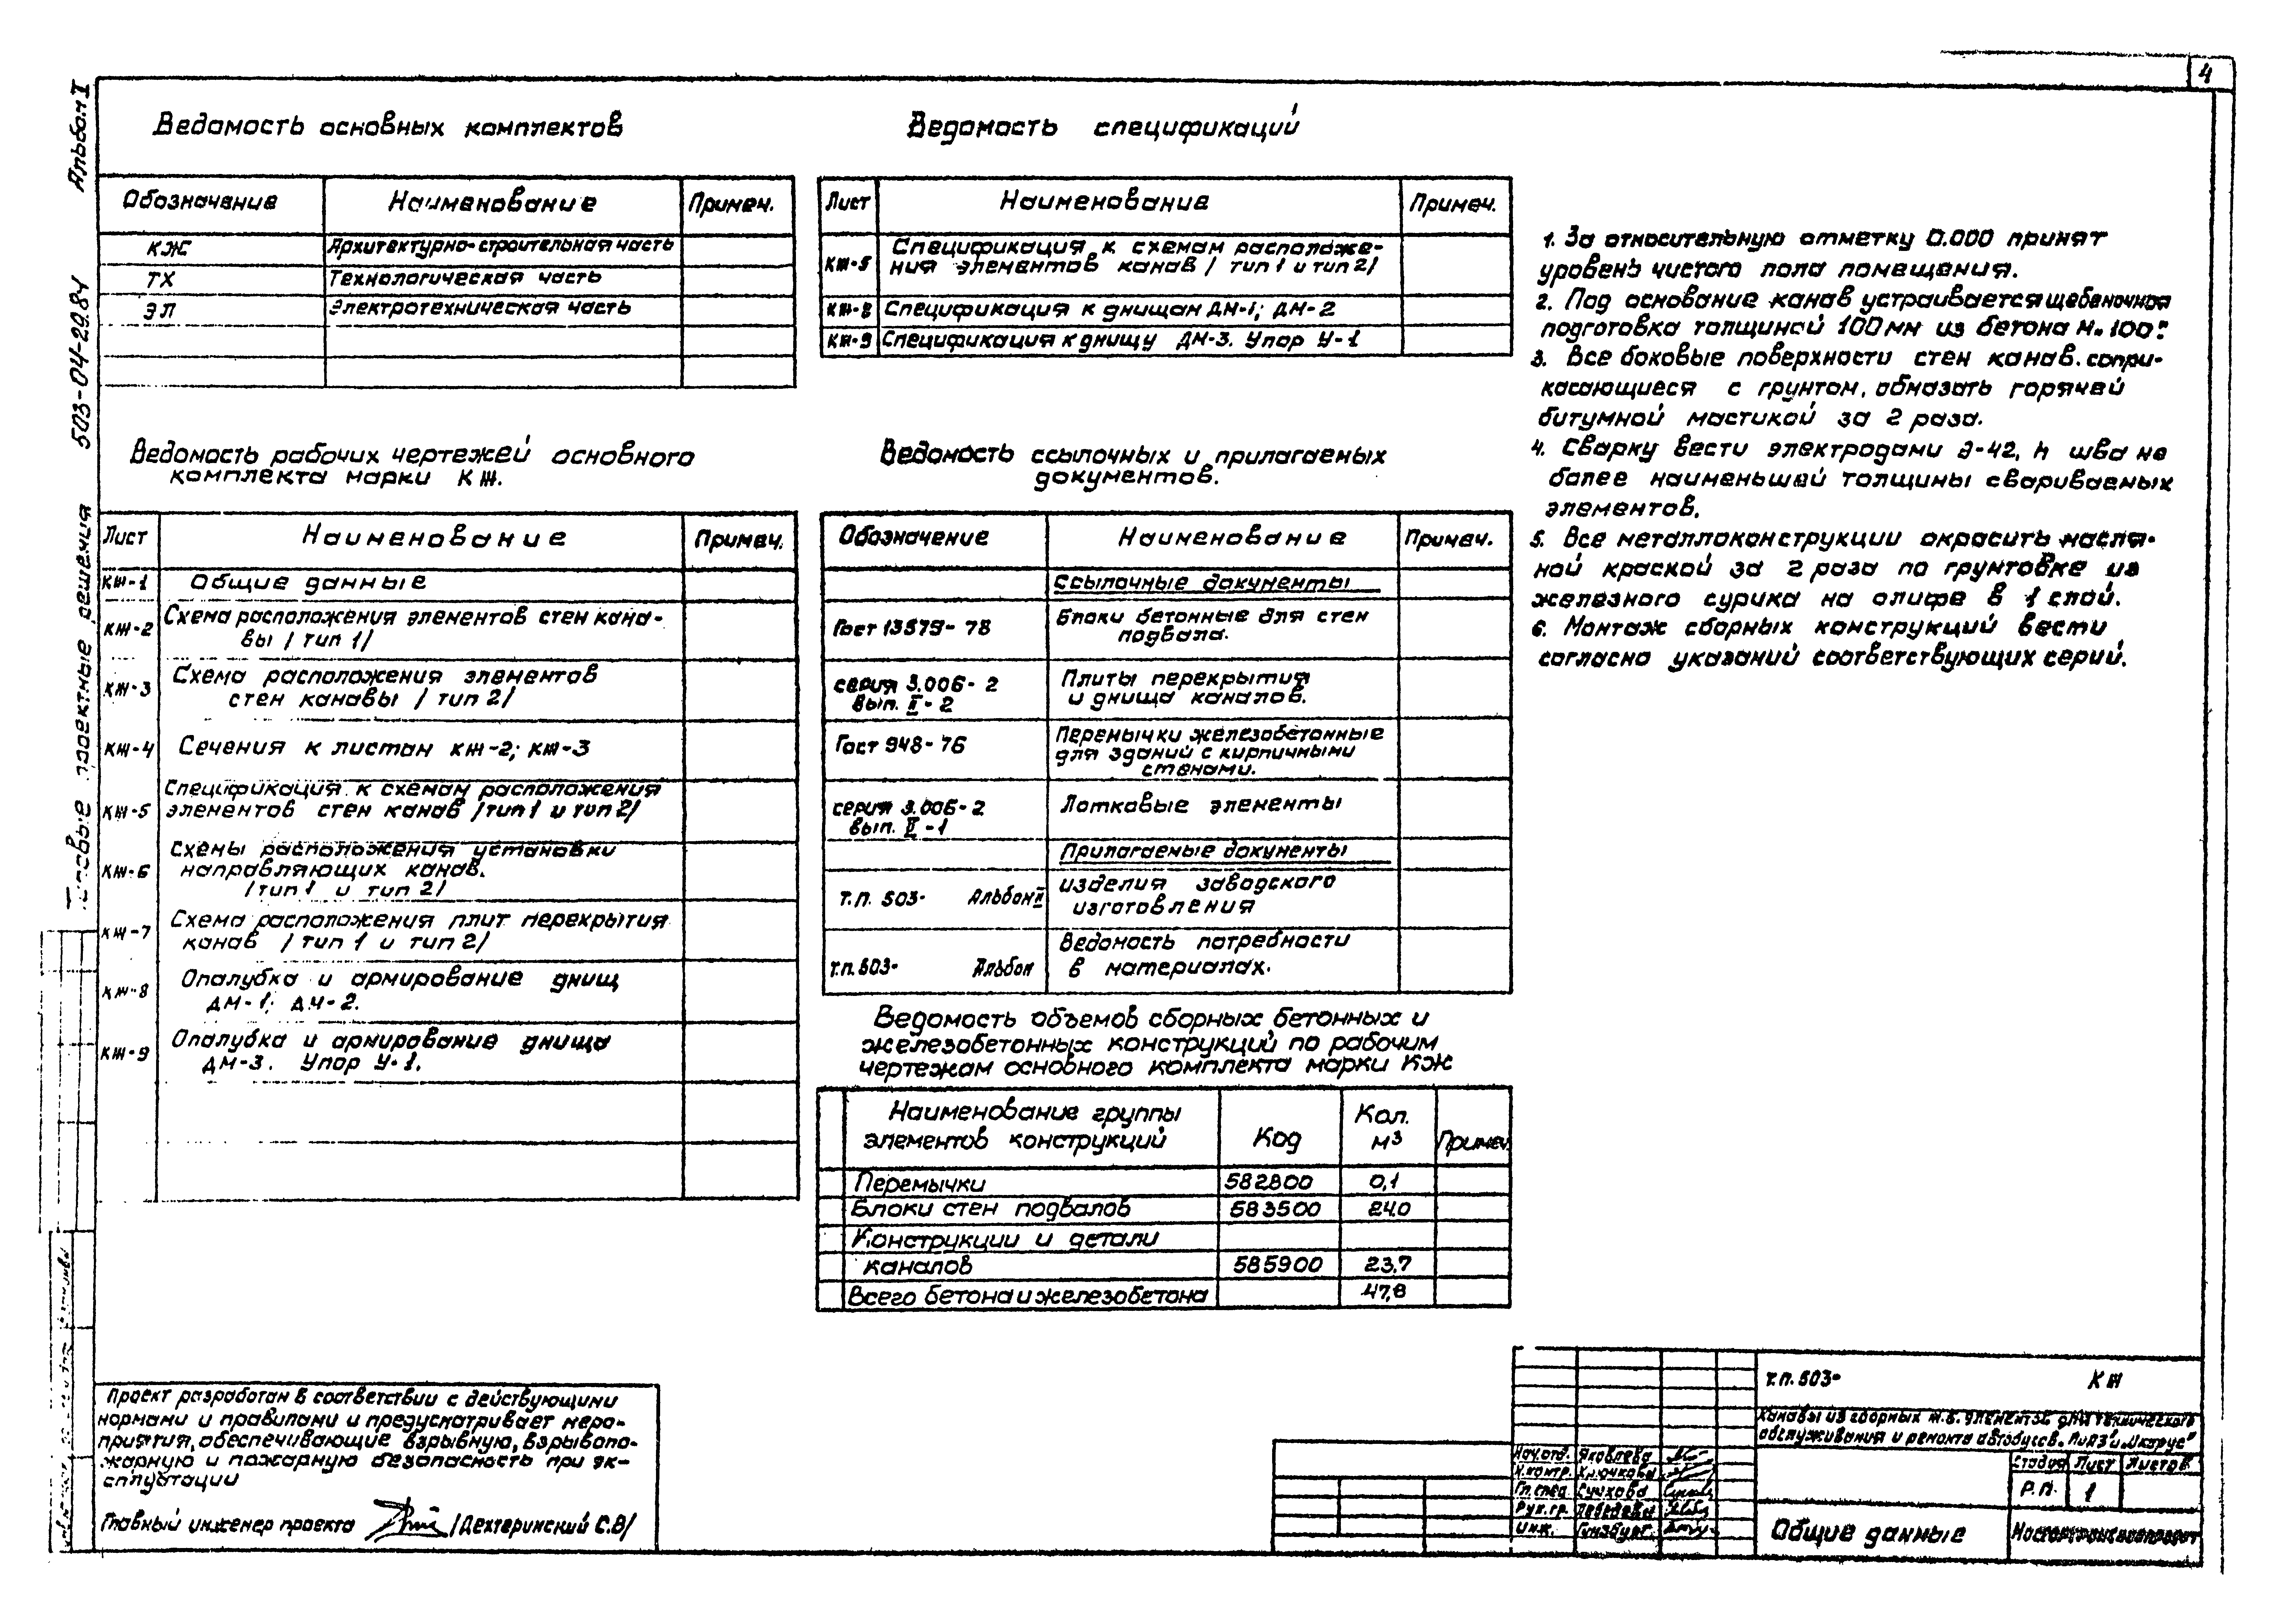 4
Альбом I
503-04-29.84
Типовые проектные решения
Ведомость основных комплектов
Обозначение Наименование Примеч.
КЖ Архитектурно-строительная часть
ТХ Технологическая часть
ЭЛ Электротехническая часть
Ведомость рабочих чертежей основного
комплекта марки КЖ.
Лист Наименование Примеч.
КЖ-1 Общие данные
КЖ-2 Схема расположения элементов стен кана-
вы /тип 1/
КЖ-3 Схема расположения элементов
стен канавы /тип 2/
КЖ-4 Сечения к листам КЖ-2; КЖ-3
КЖ-5 Спецификация к схемам расположения
элементов стен канав /тип 1 и тип 2/
КЖ-6 Схемы расположения установки
направляющих канав.
/тип 1 и тип 2/
КЖ-7 Схема расположения плит перекрытия
канав /тип 1 и тип 2/
КЖ-8 Опалубка и армирование днищ
ДМ-1; ДМ-2.
КЖ-9 Опалубка и армирование днища
ДМ-3. Упор У-1.
Проект разработан в соответствии с действующими
нормами и правилами и предусматривает меро-
приятия, обеспечивающие взрывную, взрывопо-
жарную и пожарную безопасность при эк-
сплуатации
Главный инженер проекта /Дехтеринский С.В/
Ведомость спецификаций
Лист Наименование Примеч.
КЖ-5 Спецификация к схемам расположе-
ния элементов канав /тип 1 и тип 2/
КЖ-8 Спецификация к днищам ДМ-1; ДМ-2
КЖ-9 Спецификация к днищу ДМ-3. Упор У-1
Ведомость ссылочных и прилагаемых
документов.
Обозначение Наименование Примеч.
Ссылочные документы
Гост 13579-78 Блоки бетонные для стен
подвала.
серия 3.006-2 Плиты перекрытия
вып. II-2 и днища каналов.
Гост 948-76 Перемычки железобетонные
для зданий с кирпичными
стенами.
серия 3.006-2 Лотковые элементы
вып. II-1
Прилагаемые документы
Т.П. 503- Альбом II изделия заводского
изготовления
т.п. 503- Альбом Ведомость потребности
в материалах.
Ведомость объемов сборных бетонных и
железобетонных конструкций по рабочим
чертежам основного комплекта марки КЖ
Наименование группы элементов конструкций Код Кол. м³ Примеч.
Перемычки 582800 0,1
Блоки стен подвалов 583500 24.0
Конструкции и детали
каналов 585900 23,7
Всего бетона и железобетона 47,8
1. За относительную отметку 0.000 принят
уровень чистого пола помещения.
2. Под основание канав устраивается щебеночная
подготовка толщиной 100 мм из бетона М. 100".
3. Все боковые поверхности стен канав. сопри-
касающиеся с грунтом, обмазать горячей
битумной мастикой за 2 раза.
4. Сварку вести электродами Э-42, h шва не
более наименьшей толщины свариваемых
элементов.
5. Все металлоконструкции окрасить масля-
ной краской за 2 раза по грунтовке из
железного сурика на олифе в 1 слой.
6. Монтаж сборных конструкций вести
согласно указаний соответствующих серий.
т.п. 503- КЖ
Канавы из сборных ж.б. элементов для технического
обслуживания и ремонта автобусов. ЛиАЗ" и „Икарус"
Нач.отд. Яковлева
Н.контр. Крючкова
Гл.спец. Сучкова
Рук.гр. Лебедева
Инж. Гинзбург.
Стадия Лист Листов
Р.П. 1
Общие данные